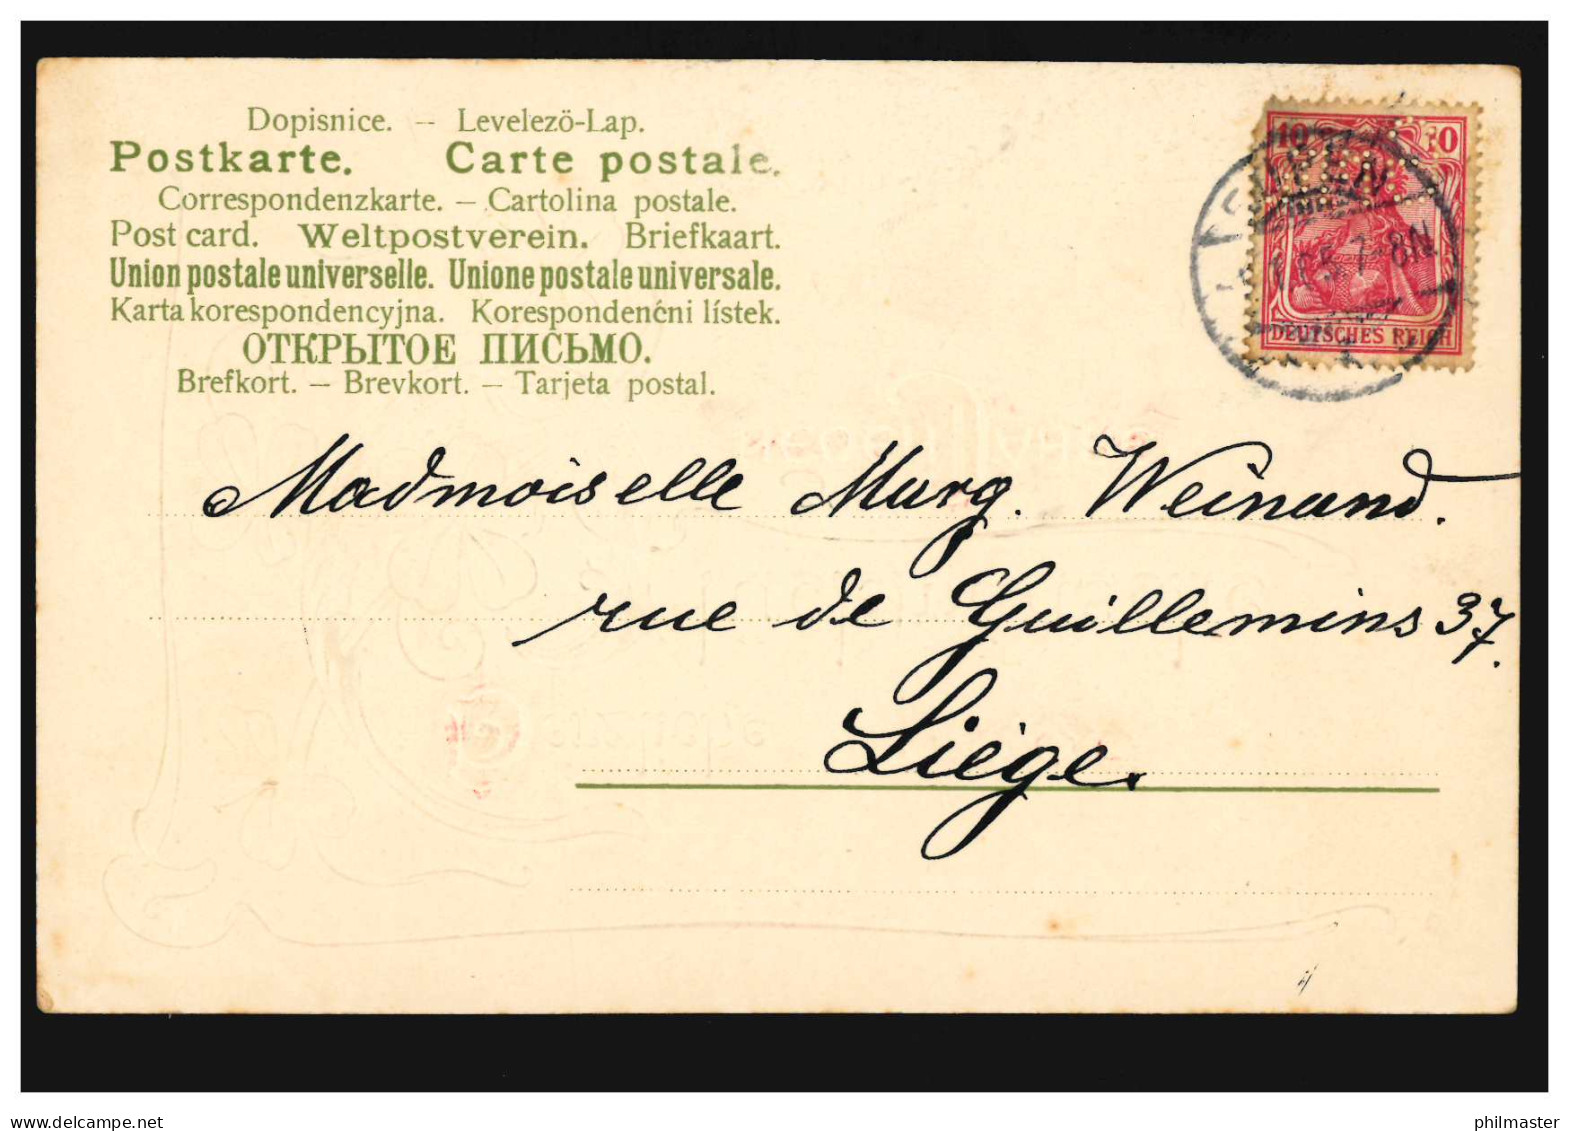 Dopisnice. -- Levelezö-Lap.
Postkarte. Carte postale.
Correspondenzkarte. – Cartolina postale.
Post card. Weltpostverein. Briefkaart.
Union postale universelle. Unione postale universale.
Karta korespondencyjna. Korespondenćni lístek.
ОТКРЫТОЕ ПИСЬМО.
Brefkort. – Brevkort. – Tarjeta postal.
10 10
EUPEN
7-8N
DEUTSCHES REICH
Madmoiselle Marg. Weinand.
rue de Guillemins 37.
Liége.
www.delcampe.net
philmaster